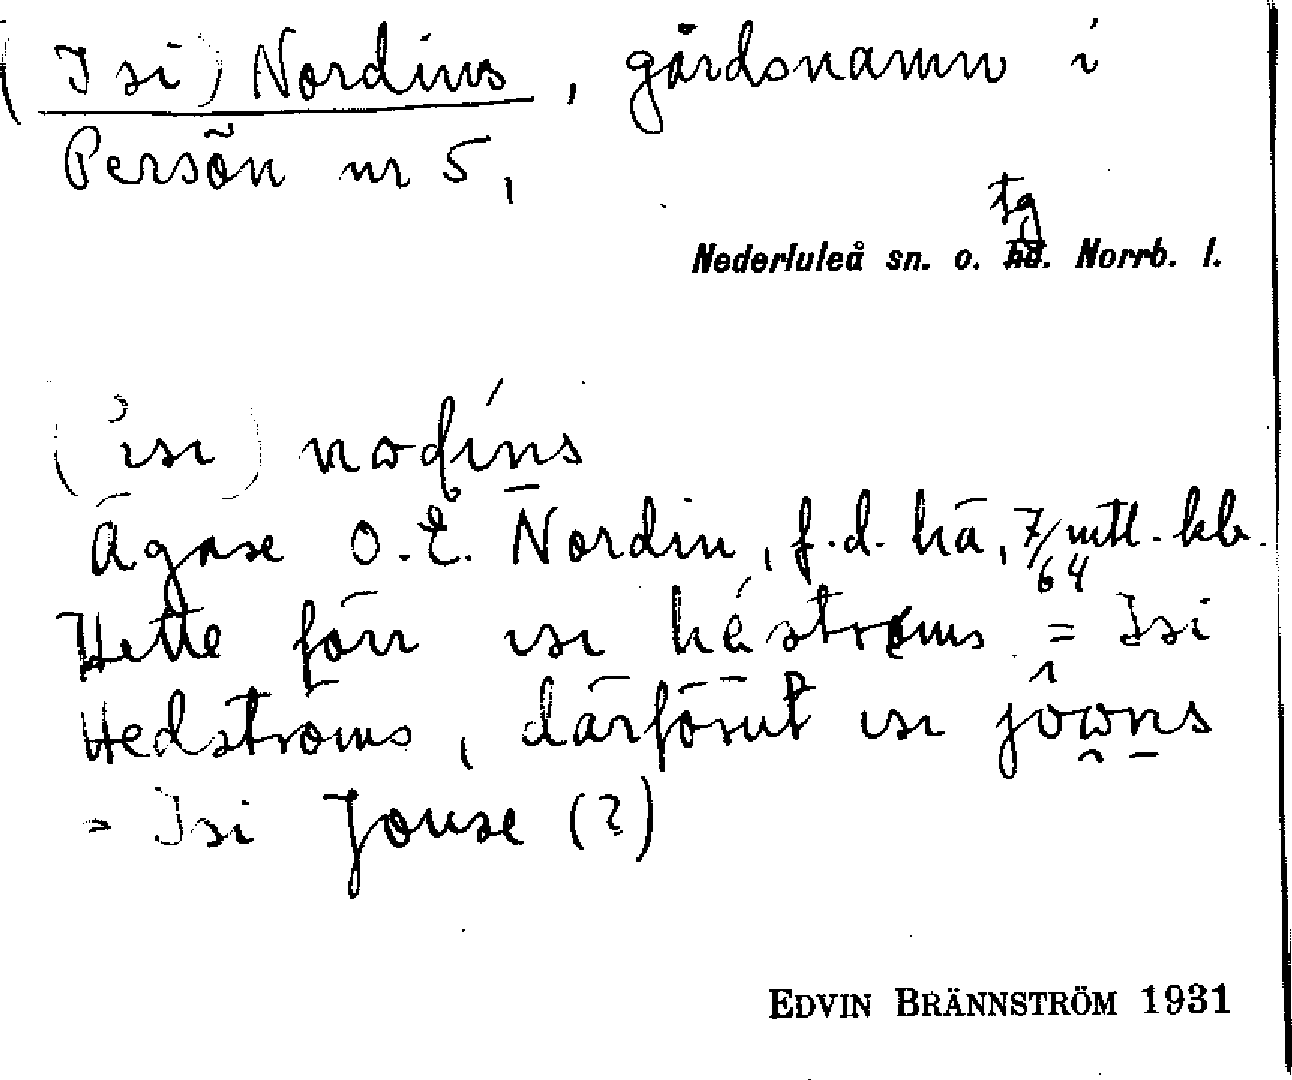 (Isi) Nordins, gårdsnamn i
Persön nr 5,
tg
Nederluleå sn. o. hd. Norrb. l.
(isi) nodins
Ägare O. E. Nordin, f.d. hä, 7/64 mtl. kb.
Hette förr isi héstrøms = Isi
Hedströms, därförut isi jôwns
= Isi Jonse (?)
EDVIN BRÄNNSTRÖM 1931